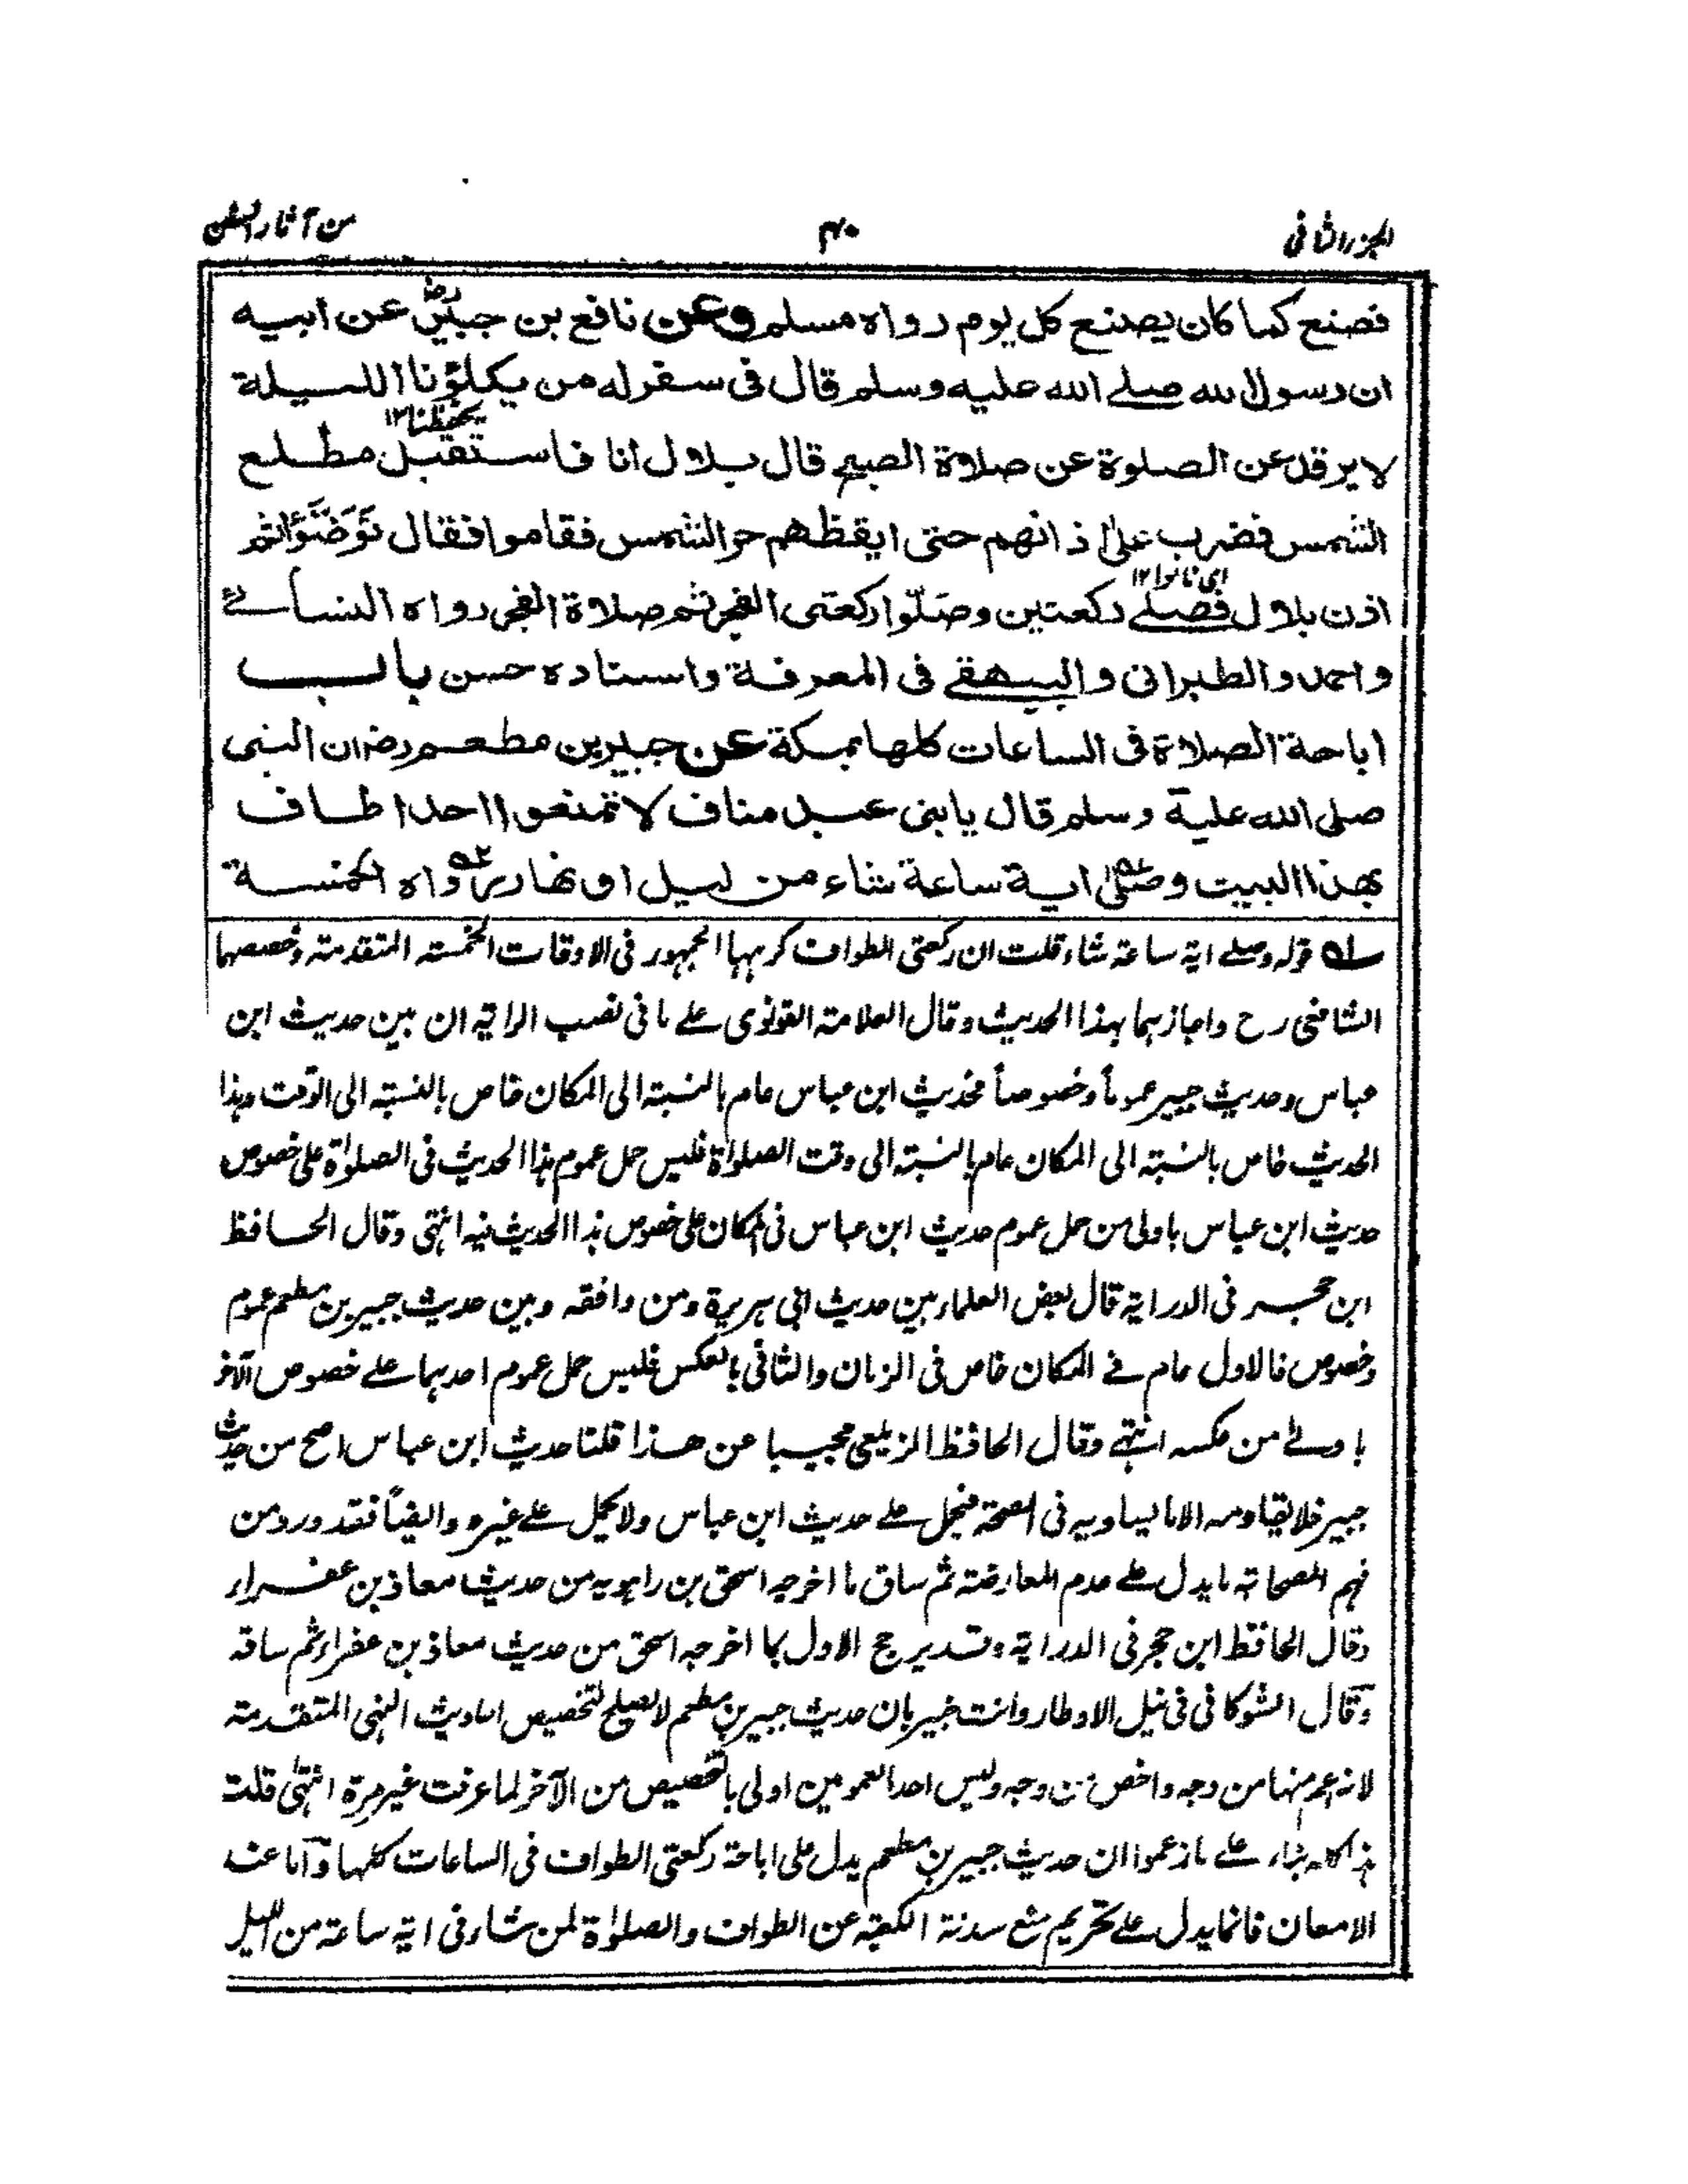 الجزء الثانی ۴۰ من آثار السنن
فصنع کما کان یصنع کل یوم رواه مسلم وعن نافع بن جبیر رض عن ابیه
ان رسول الله صلے الله علیه وسلم قال فی سفر له من یکلؤنا اللیلة
یحفظنا ۱۲
لا یرقد عن الصلوة عن صلاة الصبح قال بلال انا فاستقبل مطلع
الشمس فضرب علیٰ اذانهم حتی ایقظهم حر الشمس فقاموا فقال تَوَضَّؤُا ثم
ای ناموا ۱۲
اذن بلال فصلے رکعتین وصلّوا رکعتی الفجر ثم صلاة الفجر رواه النسائے
واحمد والطبرانی والبیهقے فی المعرفة واسناده حسن باب
اباحة الصلاة فی الساعات کلها بمکة عن جبیر بن مطعم رض ان النبی
صلی الله علیه وسلم قال یا بنی عبد مناف لا تمنعوا احدا طاف
بهذا البیت وصلیٰ ایة ساعة شاء من لیل او نهار رواه الخمسة
۱ه قوله وصلے ایة ساعة شاء قلت ان رکعتی الطواف کرهها الجمهور فی الاوقات الخمسة المتقدمة وخصصها
الشافعی رح واجازهما بهذا الحدیث وقال العلامة القونوی علے ما فی نصب الرایة ان بین حدیث ابن
عباس وحدیث جبیر عموماً وخصوصاً فحدیث ابن عباس عام بالنسبة الی المکان خاص بالنسبة الی الوقت وهذا
الحدیث خاص بالنسبة الی المکان عام بالنسبة الی وقت الصلوٰة فلیس حمل عموم هذا الحدیث فی الصلوٰة علی خصوص
حدیث ابن عباس باولی من حمل عموم حدیث ابن عباس فی المکان علی خصوص هذا الحدیث فیه انتهی وقال الحافظ
ابن حجر فی الدرایة قال بعض العلماء بین حدیث ابی هریرة ومن وافقه وبین حدیث جبیر بن مطعم عموم
وخصوص فالاول عام فے المکان خاص فی الزمان والثانی بالعکس فلیس حمل عموم احدهما علے خصوص الآخر
باولےٰ من عکسه انتهے وقال الحافظ الزیلعی مجیبا عن هذا قلنا حدیث ابن عباس اصح من حدیث
جبیر فلا یقاومه الا ما یساویه فی الصحة فیحمل علے حدیث ابن عباس ولا یحمل علے غیره وایضاً فقد ورد من
فهم الصحابة ما یدل علے عدم المعارضة ثم ساق ما اخرجه اسحٰق بن راهویه من حدیث معاذ بن عفراء
وقال الحافظ ابن حجر فی الدرایة وقد یرجح الاول بما اخرجه اسحٰق من حدیث معاذ بن عفراء ثم ساقه
وقال الشوکانی فی نیل الاوطار وانت خبیر بان حدیث جبیر بن مطعم لا یصلح لتخصیص احادیث النهی المتقدمة
لانه اعم منها من وجه واخص من وجه ولیس احد العمومین اولی بالتخصیص من الآخر لما عرفت غیر مرة انتهیٰ قلت
هذا کله بناء علے ما زعموا ان حدیث جبیر بن مطعم یدل علی اباحة رکعتی الطواف فی الساعات کلها وآما عند
الامعان فانما یدل علے تحریم منع سدنة الکعبة عن الطواف والصلوٰة لمن شاء فی ایة ساعة من اللیل